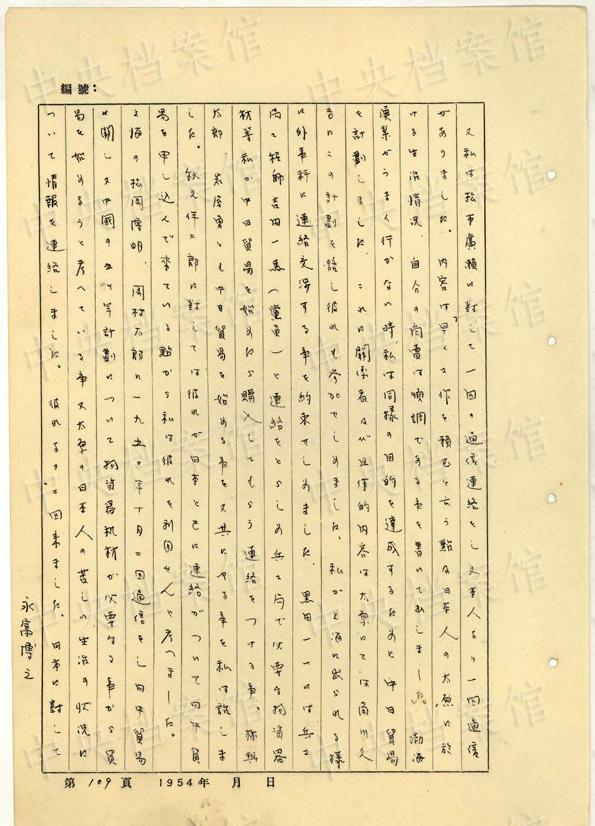 編號：
又私は松本廣瀬に対して一回の通信連絡をし又本人より一回通信
がありました。内容は早く工作を頼むと言う點及日本人の太原に於
ける生活情況、自分の商売は順調である事を書いて私しました。渤海
漁業がうまく行かない時、私は同様の目的を達成するために中日貿易
を計劃しました。これに関係者及び具体的内容は太原にては角川久
吉にこの計劃を話し彼れも参加せしめました。私が上海に出られる様
に外事科に連絡交渉する事を約束せしめました。黒田一一には兵工
局工程師吉田一馬（黨員）と連絡をとらしめ兵工局で必要な物資器
材等私が中日貿易を始めたら購入してもらう連絡をつける事。
太郎、岩屋勇とも中日貿易を始める事を又共にやる事を私は説しま
した。秋元伴七郎に対しては彼れが日本と已に連絡がついて日中貿
易を申し込んで来ている點から私は彼れを利用せんと考へました。
上海の松岡隆明、岡村太郎に一九五〇年十月二回通信をし日中貿易
に関し又中國の五ヶ年計劃について物資器机材が必要なる事から貿
易を始めようと考へている事又太原の日本人の苦しい生活の状況に
ついて情報を連絡しました。彼れより二回来ました。日本に対して
永富博之
第109頁 1954年 月 日
中央档案馆